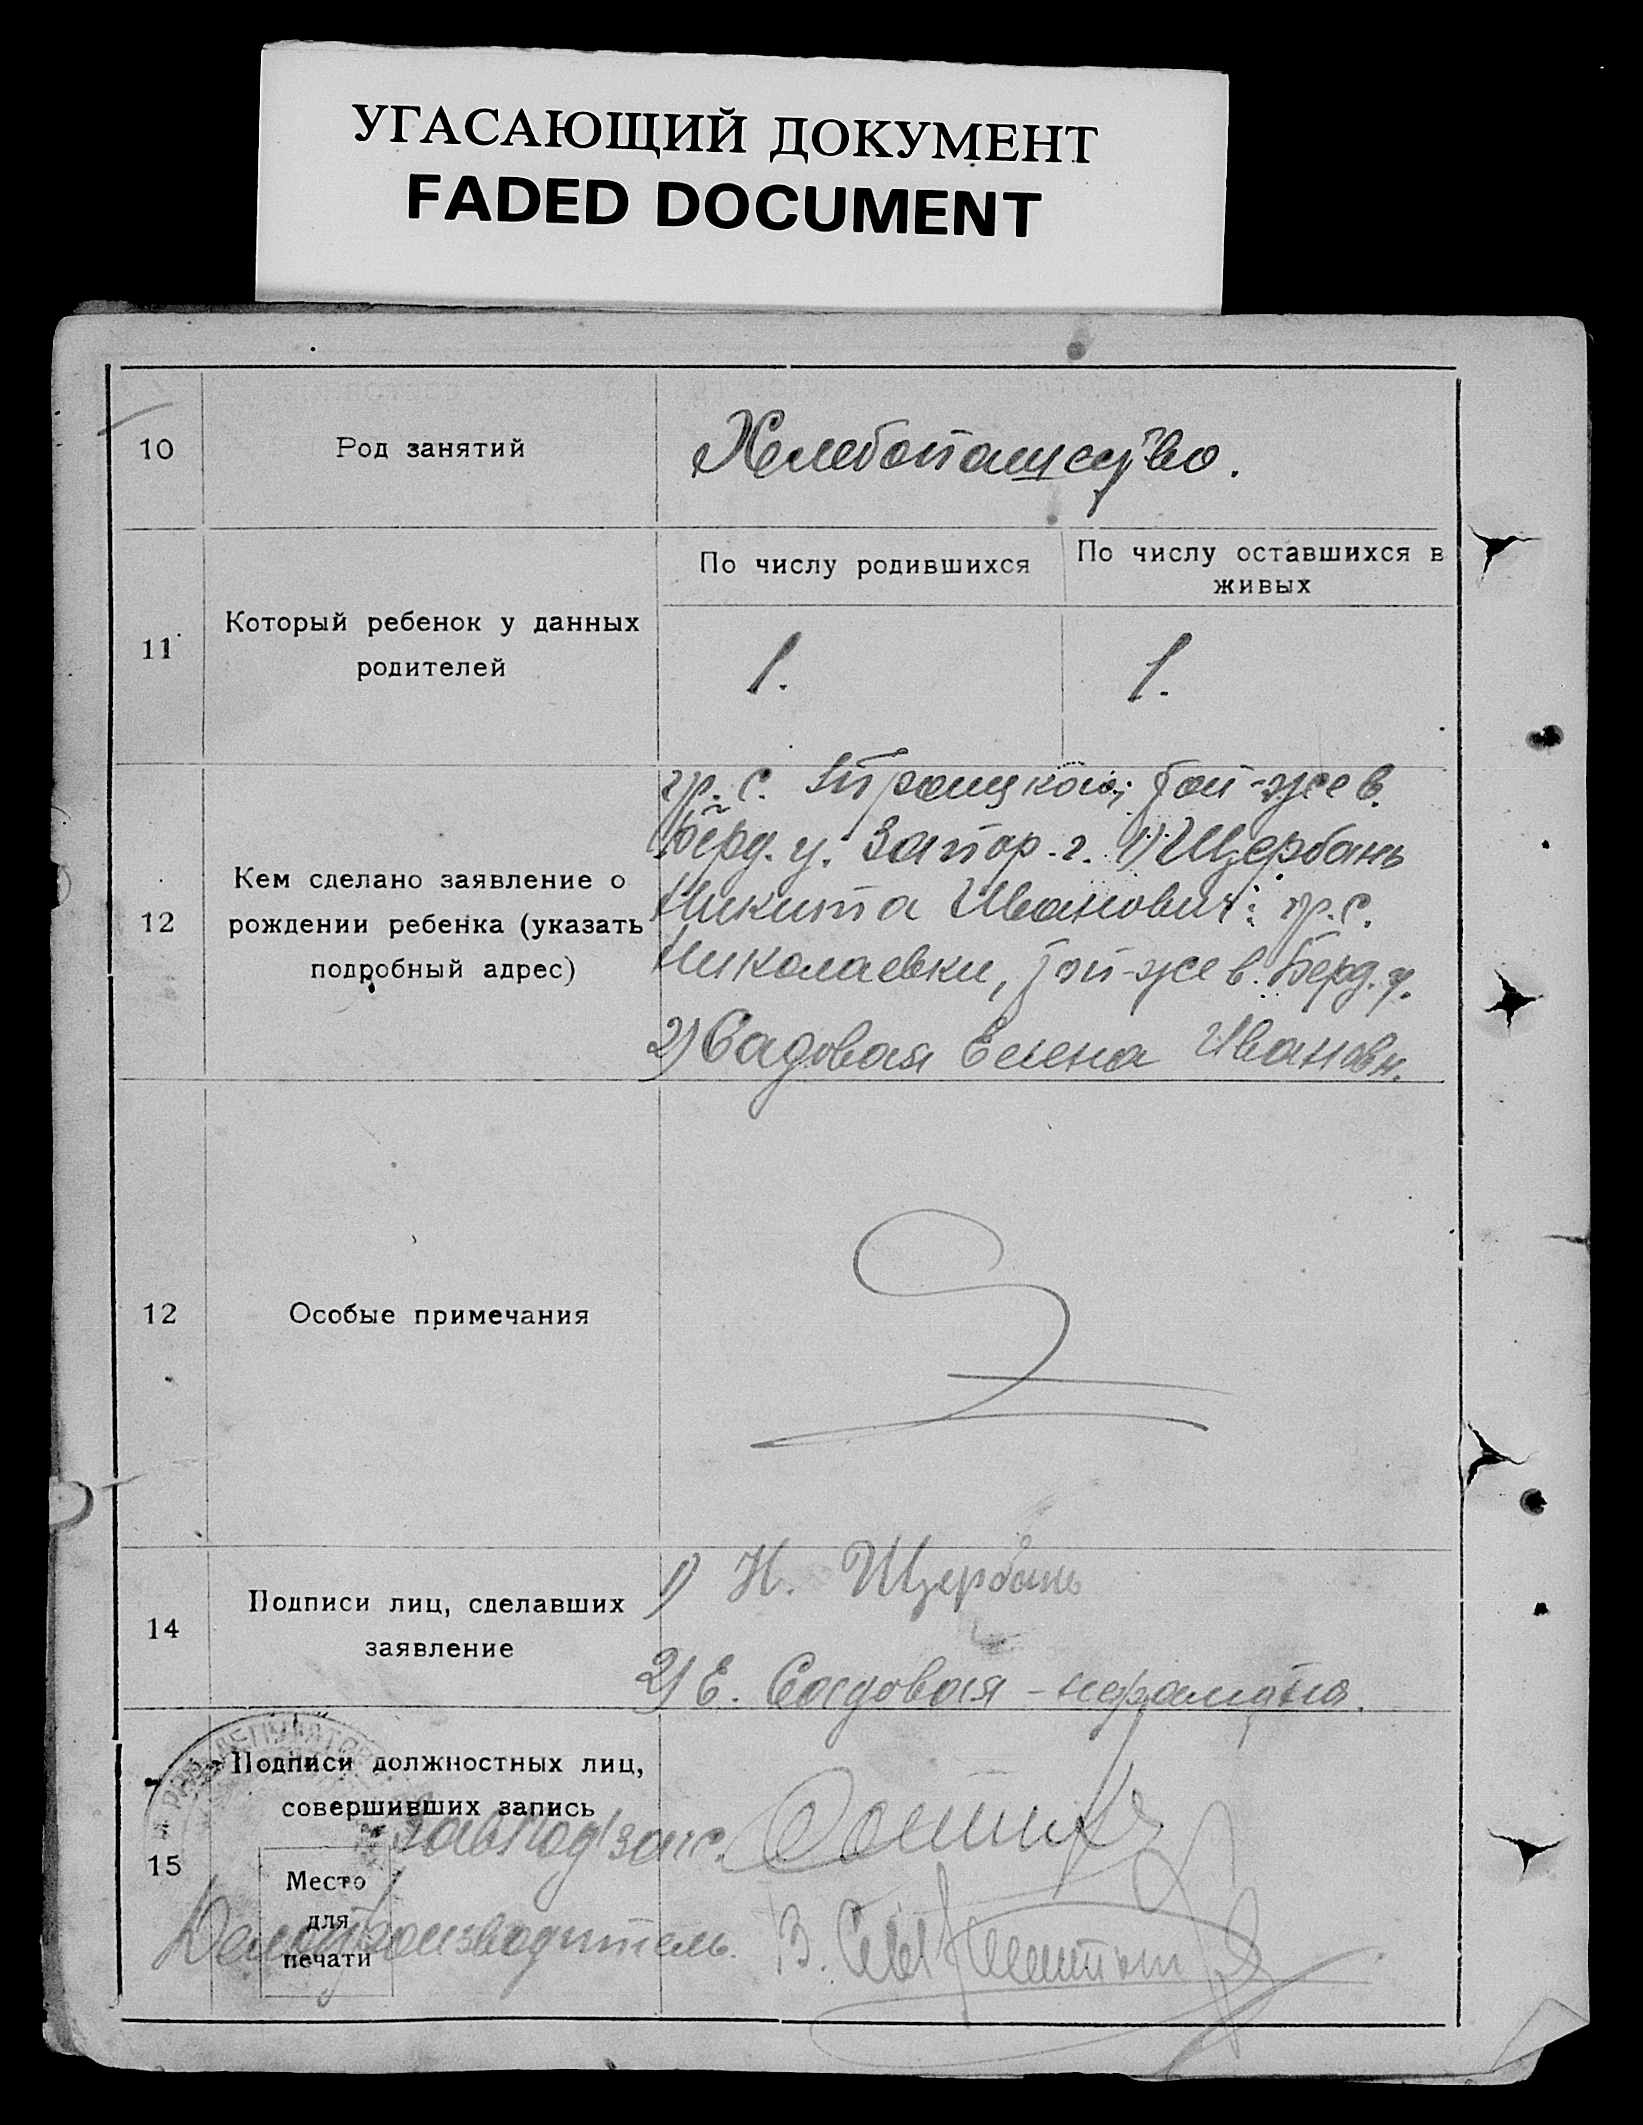 УГАСАЮЩИЙ ДОКУМЕНТ
FADED DOCUMENT
10
Род занятий
Хлебопашество.
11
Который ребенок у данных
родителей
По числу родившихся
По числу оставшихся в
живых
1.
1.
12
Кем сделано заявление о
рождении ребенка (указать
подробный адрес)
гр. с. Троицкой, той-же в.
Берд. у. Запор. г. 1) Щербань
Никита Иванович: гр. с.
Николаевки, той-же в. Берд. у.
2) Садовая Елена Ивановн.
12
Особые примечания
14
Подписи лиц, сделавших
заявление
1) Н. Щербань
2) Е. Садовая - неграмотна.
15
Подписи должностных лиц,
совершивших запись
Место
для
печати
Завподзагс.
Делопроизводитель. В.